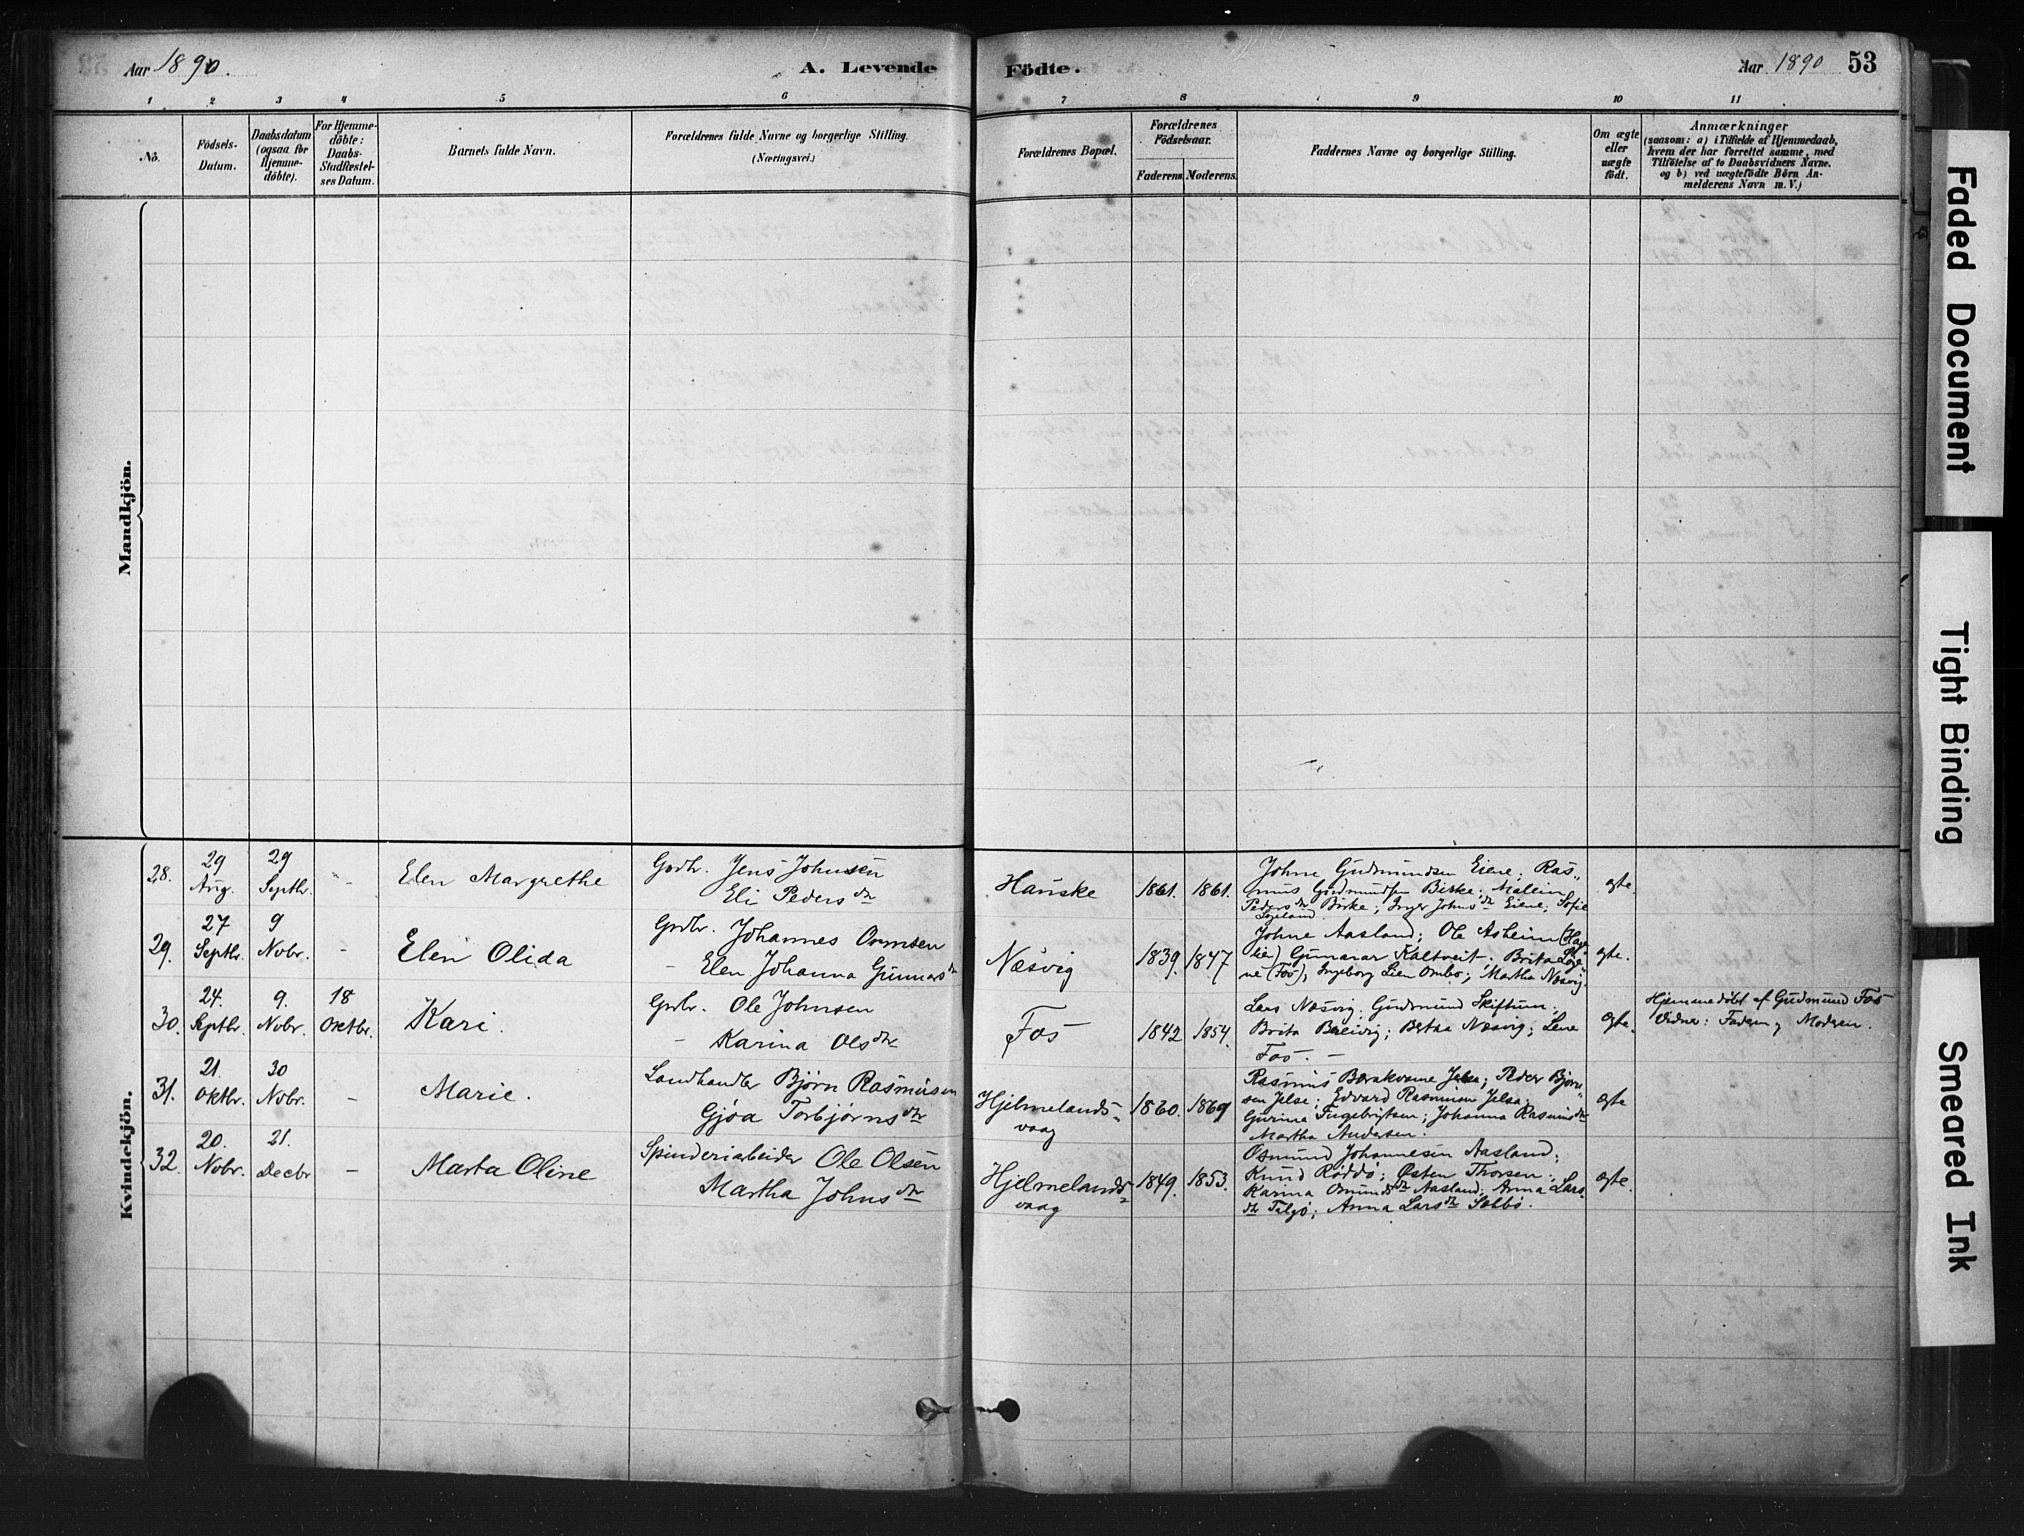 Aar 1890. A. Levende Födte. Aar 1890 53
1 2 3 4 5 6 7 8 9 10 11
No.
Födsels-
Datum.
Daabsdatum
(ogsaa for
Hjemme-
döbte).
For Hjemme-
döbte:
Daabs-
Stadfæstel-
ses Datum.
Barnets fulde Navn.
Forældrenes fulde Navne og borgerlige Stilling.
(Næringsvei.)
Forældrenes Bopæl.
Forældrenes
Födselsaar.
Faderens. Moderens.
Faddernes Navne og borgerlige Stilling.
Om ægte
eller
uægte
födt.
Anmærkninger
(saasom: a) i Tilfælde af Hjemmedaab,
hvem der har forrettet samme, med
Tilföielse af to Daabsvidners Navne.
og b) ved uægtefödte Börn An-
melderens Navn m.V.)
Mandkjön.
Kvindekjön.
28.
29
Aug.
29
Septbr.
-
Elen Margrethe
Grdbr. Jens Johnsen
Eli Pedersdtr
Hauske
1861.
1861.
Johne Gudmundsen Eiene; Ras-
mus Gudmundsen Birke; Malein
Pedersdtr Birke; Inger Johnsdtr Eiene; Sofie
ægte
29.
27
Septbr.
9
Nobr.
-
Elen Olida
Grdbr. Johannes Osmsen
- Elen Johanna Gunnarsdtr
Næsvig
1839.
1847
Johne Aasland; Ole Asheim (Hage
lie) Gunnar Kaltveit. Brita Lo
ne (Fos); Ingeborg Lien Ombo; Martha Næsvig.
ægte.
30.
24.
Septbr.
9.
Nobr.
18
Oktbr.
Kari.
Grbr. Ole Johnsen
- Karina Olsdtr
Fos
1842
1854.
Lars Næsvig; Gudmund Skiftun.
Brita Breivig; Bertha Næsvig; Lene
Fos. -
ægte.
Hjemmedøbt af Gudmund Fos
Vidner: Faderen og Moderen.
31.
21.
Oktbr.
30
Nobr.
-
Marie.
Landhandler Bjørn Rasmusen
Gjøa Torbjørnsdtr
Hjelmelands-
vaag
1860.
1869
Rasmus Barakvame Jelse; Peder Bjørn
sen Jelse; Edvard Rasmusen Jelsa.
Gurina Ingebrigtsen; Johanna Rasmusdtr
Martha Andersen.
ægte
32.
20.
Nobr.
21.
Decbr
-
Marta Oline
Spinderiarbeider Ole Olsen
Martha Johnsdtr
Hjelmelands-
vaag
1849.
1853.
Osmund Johannesen Aasland;
Knud Røddø; Østen Thorsen;
Karina Omundsdtr Aasland; Anna Lars-
dtr Talgø; Anna Larsdtr Solbø.
ægte.
Faded Document
Tight Binding
Smeared Ink